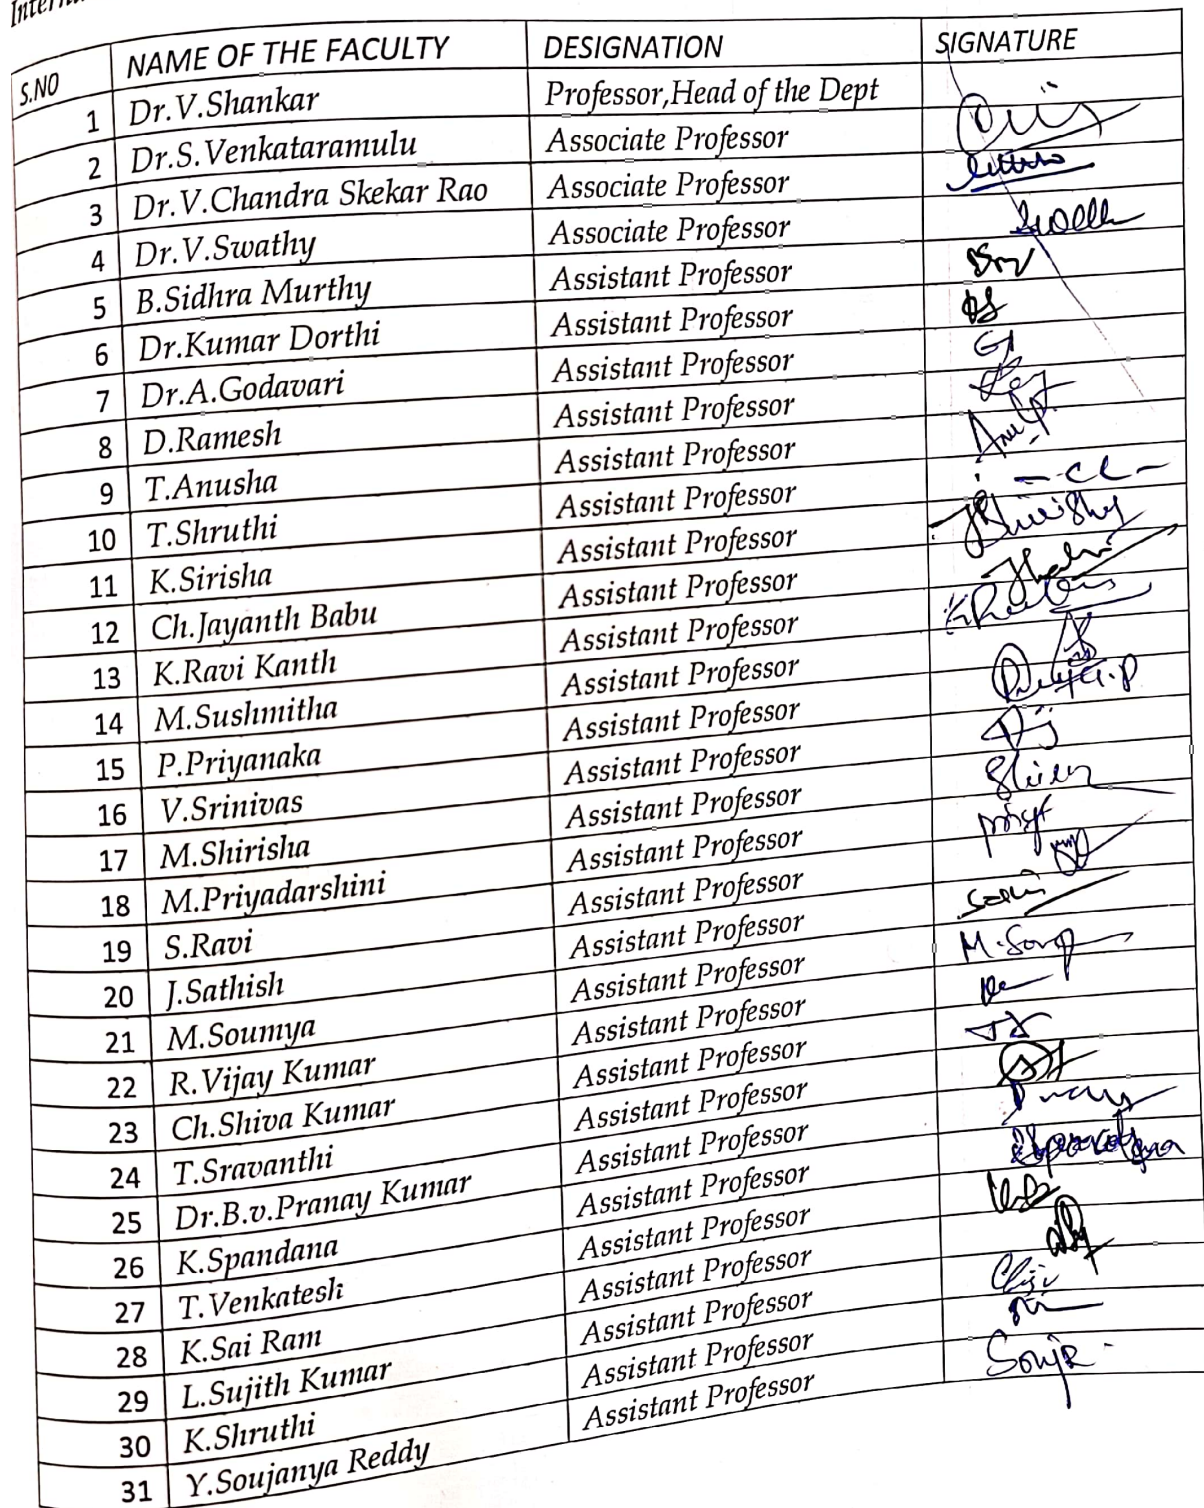 S.NO NAME OF THE FACULTY DESIGNATION SIGNATURE
1 Dr.V.Shankar Professor,Head of the Dept
2 Dr.S.Venkataramulu Associate Professor
3 Dr.V.Chandra Skekar Rao Associate Professor
4 Dr.V.Swathy Associate Professor
5 B.Sidhra Murthy Assistant Professor
6 Dr.Kumar Dorthi Assistant Professor
7 Dr.A.Godavari Assistant Professor
8 D.Ramesh Assistant Professor
9 T.Anusha Assistant Professor
10 T.Shruthi Assistant Professor
11 K.Sirisha Assistant Professor
12 Ch.Jayanth Babu Assistant Professor
13 K.Ravi Kanth Assistant Professor
14 M.Sushmitha Assistant Professor
15 P.Priyanaka Assistant Professor
16 V.Srinivas Assistant Professor
17 M.Shirisha Assistant Professor
18 M.Priyadarshini Assistant Professor
19 S.Ravi Assistant Professor
20 J.Sathish Assistant Professor
21 M.Soumya Assistant Professor
22 R.Vijay Kumar Assistant Professor
23 Ch.Shiva Kumar Assistant Professor
24 T.Sravanthi Assistant Professor
25 Dr.B.v.Pranay Kumar Assistant Professor
26 K.Spandana Assistant Professor
27 T.Venkatesh Assistant Professor
28 K.Sai Ram Assistant Professor
29 L.Sujith Kumar Assistant Professor
30 K.Shruthi Assistant Professor
31 Y.Soujanya Reddy Assistant Professor